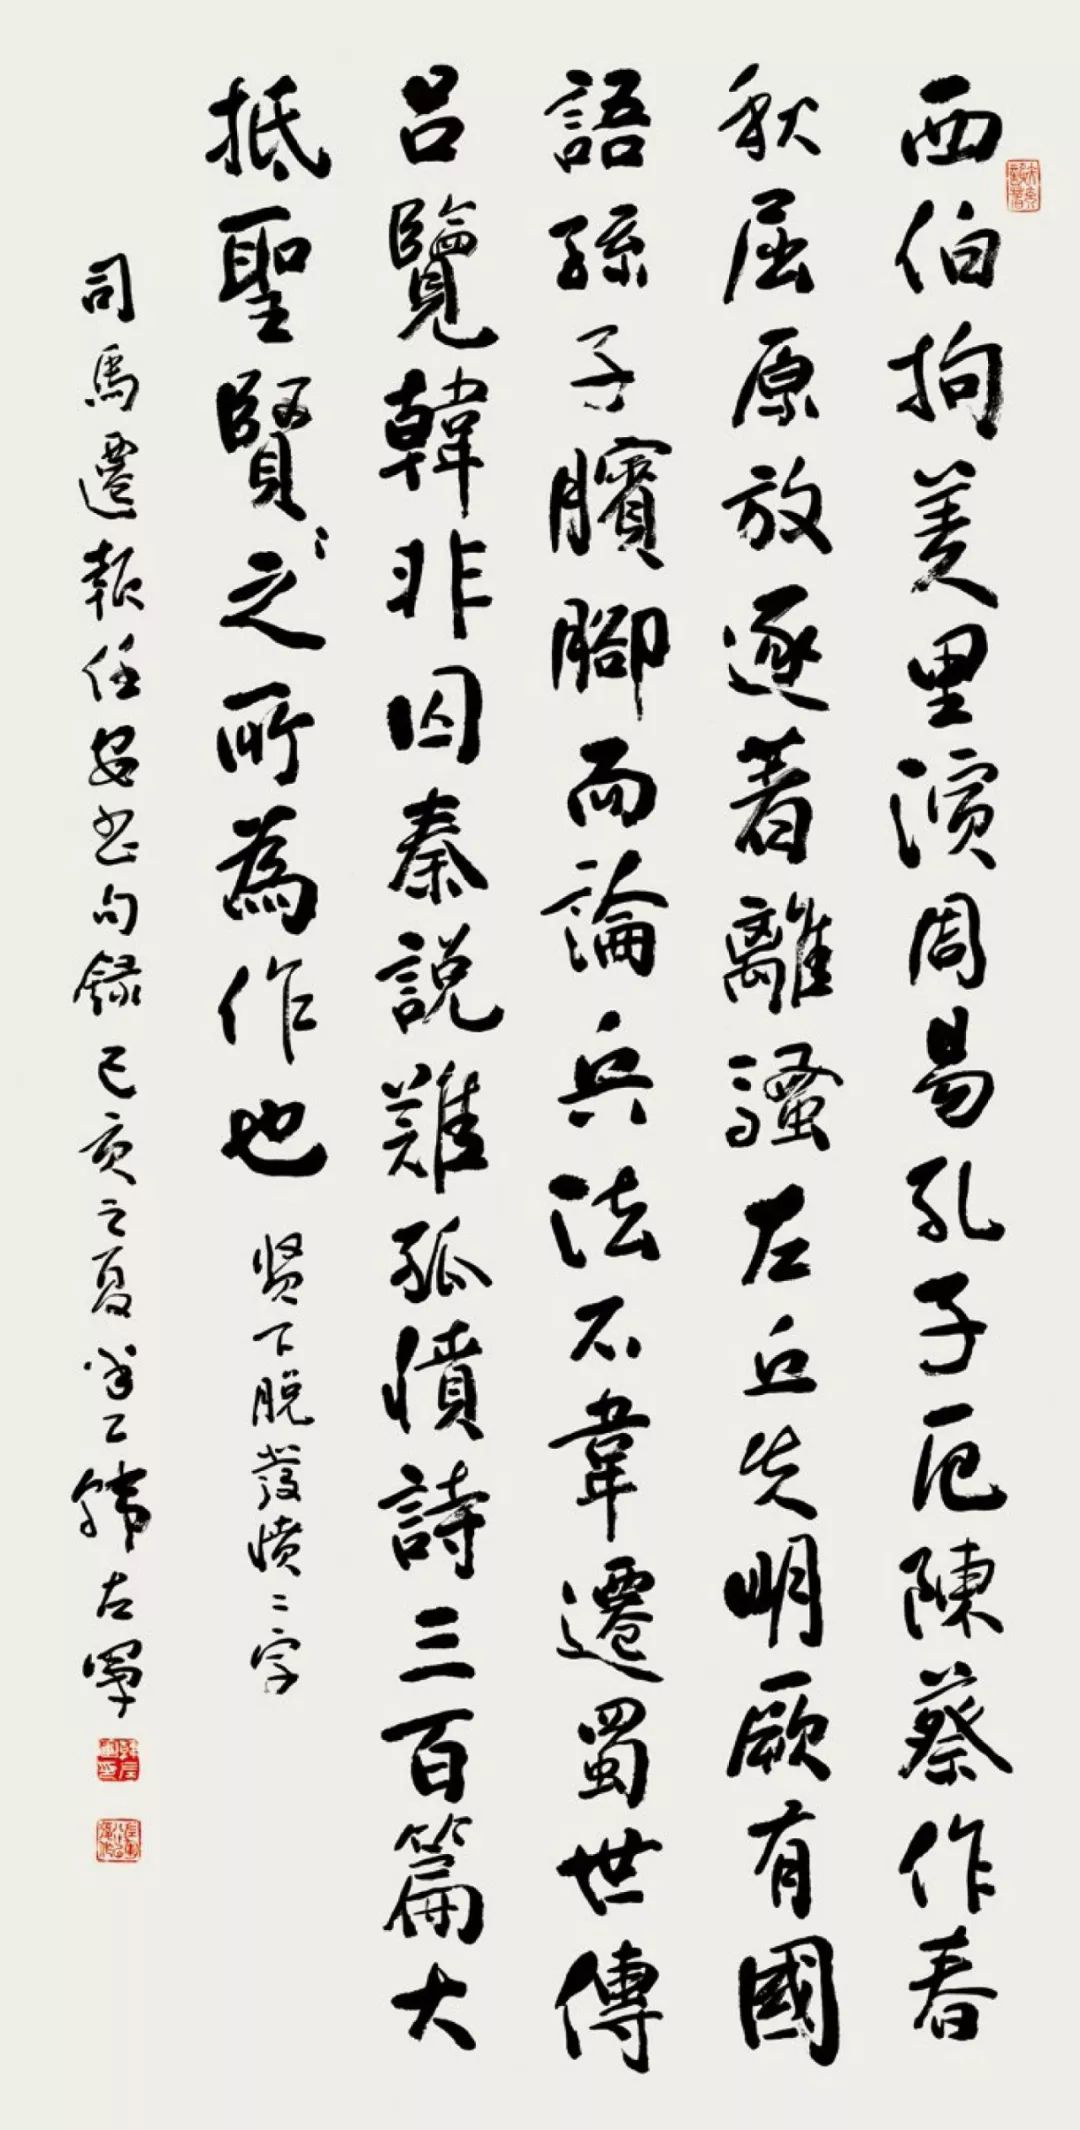 西伯拘羑里演周易孔子厄陳蔡作春
秋屈原放逐著離騷左丘失明厥有國
語孫子臏腳而論兵法不韋遷蜀世傳
呂覽韓非囚秦說難孤憤詩三百篇大
抵聖賢之所為作也
贤下脱發愤二字
司馬遷報任安书句録己亥之夏半工韩左軍